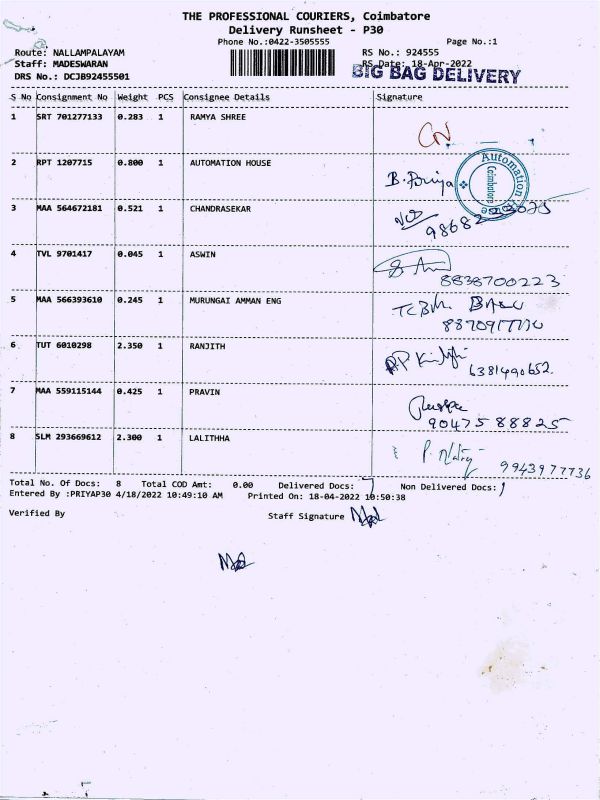 THE PROFESSIONAL COURIERS, Coimbatore
Delivery Runsheet - P30
Phone No.:0422-3505555 Page No.:1
Route: NALLAMPALAYAM RS No.: 924555
Staff: MADESWARAN RS Date: 18-Apr-2022
DRS No.: DCJB92455501 BIG BAG DELIVERY
S No Consignment No Weight PCS Consignee Details Signature
1 SRT 701277133 0.283 1 RAMYA SHREE
2 RPT 1207715 0.800 1 AUTOMATION HOUSE B. Priya Automation Coimbatore
3 MAA 564672181 0.521 1 CHANDRASEKAR
4 TVL 9701417 0.045 1 ASWIN 8838700223
5 MAA 566393610 0.245 1 MURUNGAI AMMAN ENG
6 TUT 6010298 2.350 1 RANJITH 6381490652.
7 MAA 559115144 0.425 1 PRAVIN 9047588825
8 SLM 293669612 2.300 1 LALITHHA 9943977736
Total No. Of Docs: 8 Total COD Amt: 0.00 Delivered Docs: 7 Non Delivered Docs: 1
Entered By :PRIYAP30 4/18/2022 10:49:10 AM Printed On: 18-04-2022 10:50:38
Verified By Staff Signature